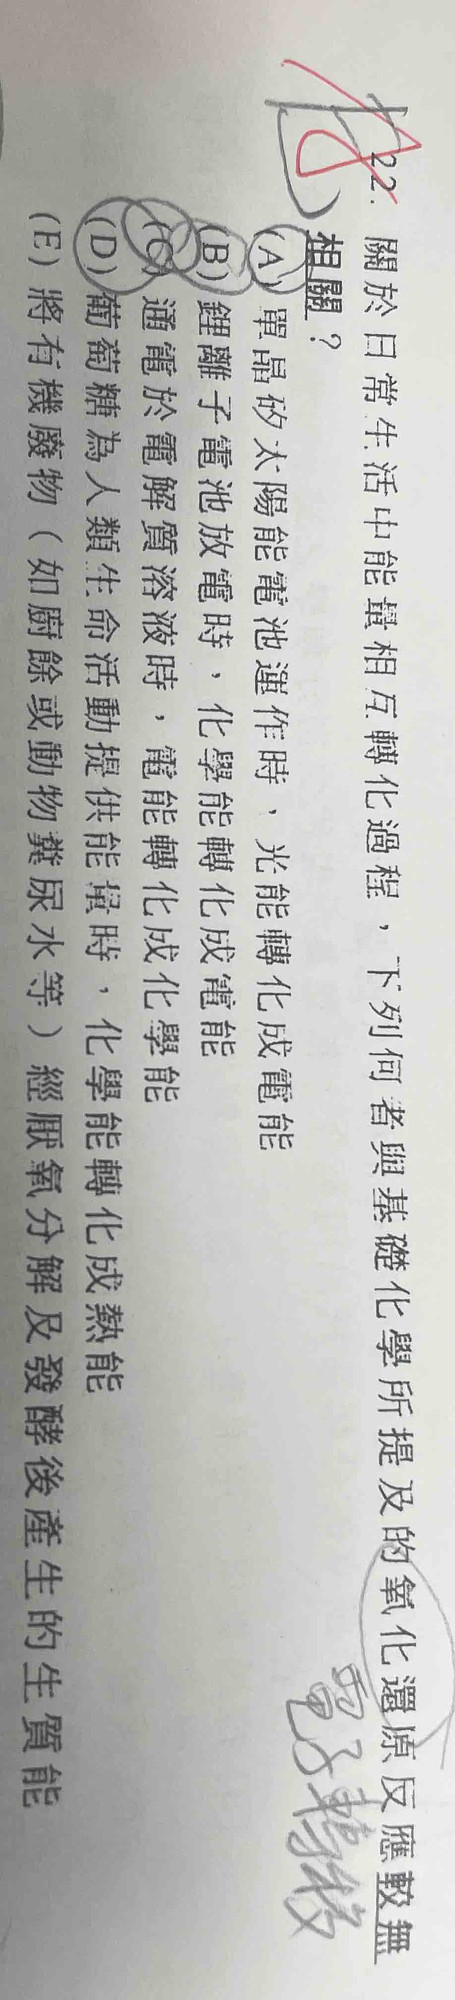 22. 關於日常生活中能量相互轉化過程，下列何者與基礎化學所提及的氧化還原反應較無
相關？
(A) 單晶矽太陽能電池運作時，光能轉化成電能
(B) 鋰離子電池放電時，化學能轉化成電能
(C) 通電於電解質溶液時，電能轉化成化學能
(D) 葡萄糖為人類生命活動提供能量時，化學能轉化成熱能
(E) 將有機廢物（如廚餘或動物糞尿水等）經厭氧分解及發酵後產生的生質能
電子轉移